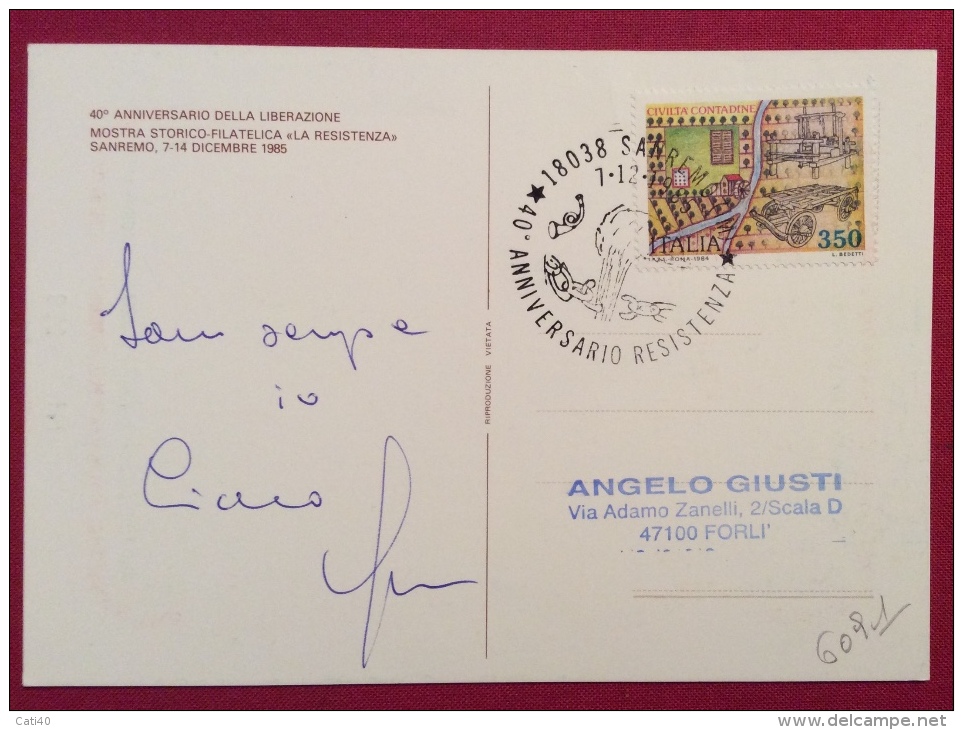 40º ANNIVERSARIO DELLA LIBERAZIONE
MOSTRA STORICO-FILATELICA «LA RESISTENZA»
SANREMO, 7-14 DICEMBRE 1985
sempre
io
Ciao
RIPRODUZIONE VIETATA
CIVILTÀ CONTADINE
ITALIA
350
L. BEDETTI
★ 18038 SANREMO
7·12·1985
★ 40° ANNIVERSARIO RESISTENZA ★
ANGELO GIUSTI
Via Adamo Zanelli, 2/Scala D
47100 FORLI'
6091
Cati40
www.delcampe.net